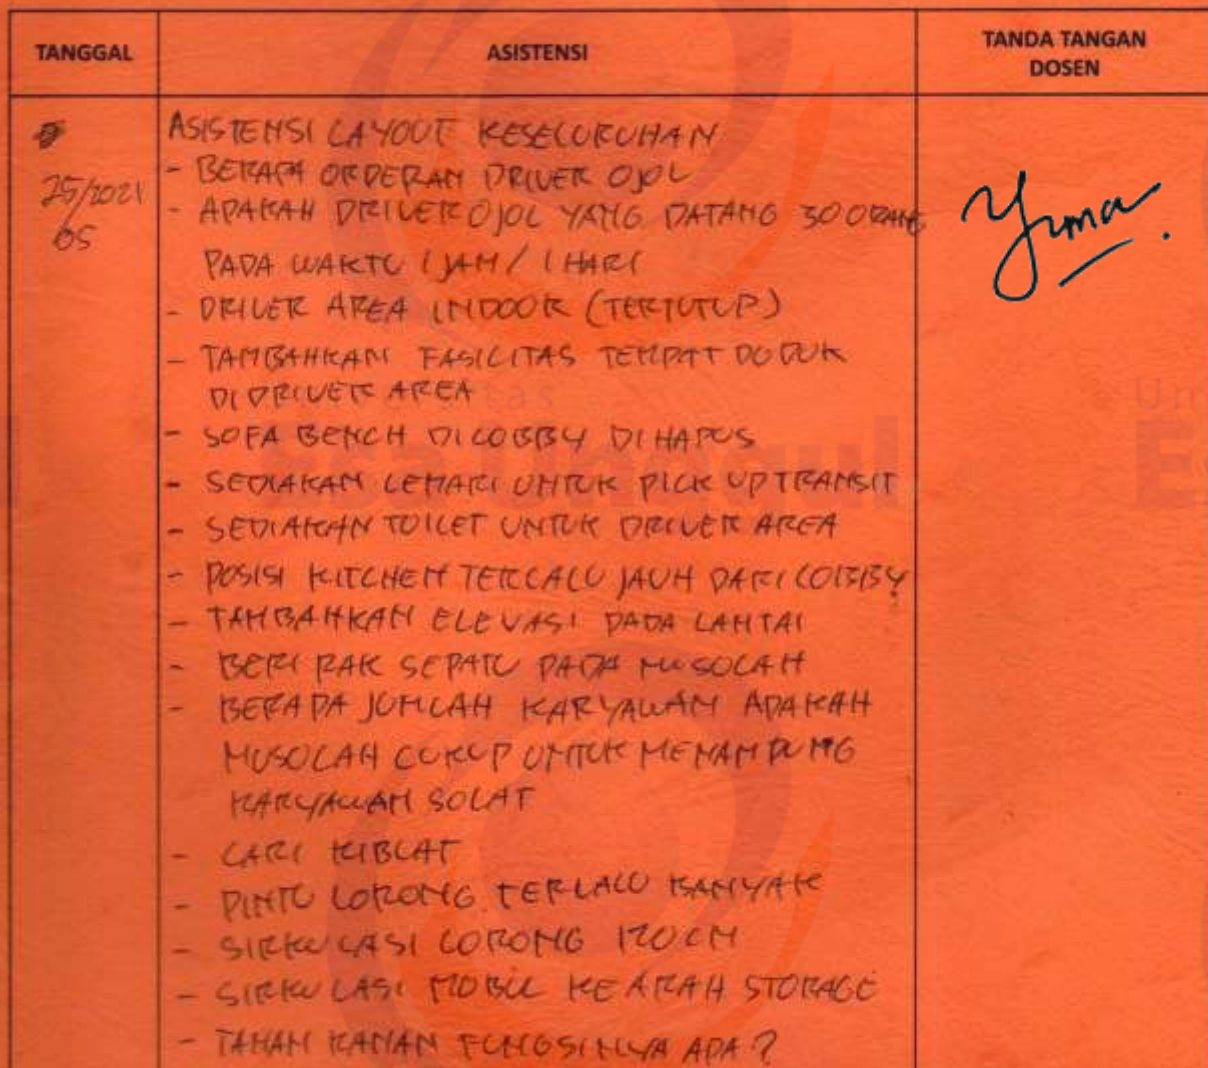 TANGGAL
ASISTENSI
TANDA TANGAN
DOSEN
25/2021
05
ASISTENSI LAYOUT KESELURUHAN
- BERAPA ORDERAN DRIVER OJOL
- APAKAH DRIVER OJOL YANG DATANG 30 ORANG
PADA WAKTU 1 JAM / 1 HARI
- DRIVER AREA INDOOR (TERTUTUP)
- TAMBAHKAN FASILITAS TEMPAT DUDUK
DI DRIVER AREA
- SOFA BENCH DI LOBBY DI HAPUS
- SEDIAKAN LEMARI UNTUK PICK UP TRANSIT
- SEDIAKAN TOILET UNTUK DRIVER AREA
- POSISI KITCHEN TERLALU JAUH DARI LOBBY
- TAMBAHKAN ELEVASI PADA LANTAI
- BERI RAK SEPATU PADA MUSOLAH
- BERAPA JUMLAH KARYAWAN APAKAH
MUSOLAH CUKUP UNTUK MENAMPUNG
KARYAWAN SOLAT
- CARI KIBLAT
- PINTU LORONG TERLALU BANYAK
- SIRKULASI LORONG 120 CM
- SIRKULASI MOBIL KE ARAH STORAGE
- TAMAN KANAN FUNGSINYA APA?
Esa Unggul